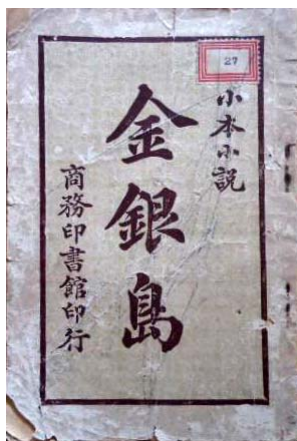 27
小本小說
金銀島
商務印書館印行